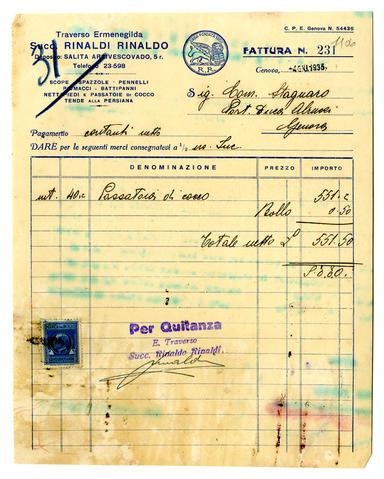 Traverso Ermenegilda
Succ. RINALDI RINALDO
Deposito: SALITA ARCIVESCOVADO, 5 r.
Telefono 23-598
SCOPE - SPAZZOLE - PENNELLI
PIUMACCI - BATTIPANNI
NETTAPIEDI E PASSATOIE DI COCCO
TENDE ALLA PERSIANA
31
R. R.
C. P. E. Genova N. 54436
1106
FATTURA N. 231
Genova, -4 GIU 1935
Sig. Com. Stagnaro
Genova
Pagamento contanti netto
DARE per le seguenti merci consegnateci a 1/2 ns. Suc.
DENOMINAZIONE PREZZO IMPORTO
mt. 40.2 Passatoia di cocco 551.=
Bollo 0.50
Totale netto 551.50
S.E.&O.
Per Quitanza
E. Traverso
Succ. Rinaldo Rinaldi.